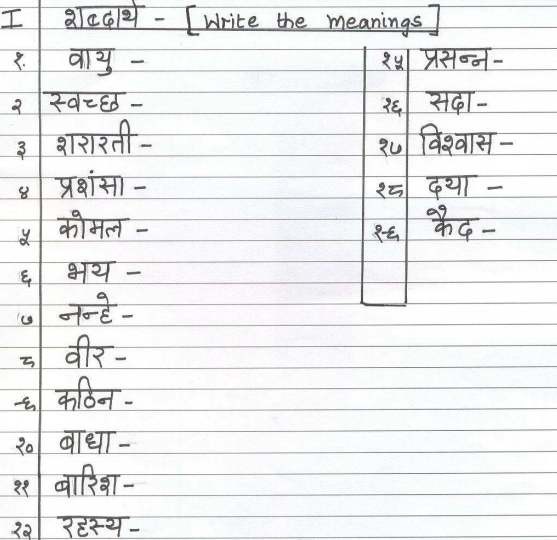 I शब्दार्थ - [Write the Meanings]
१. वायु -
२ स्वच्छ -
३ शरारती -
४ प्रशंसा -
५ कोमल -
६ भय -
७ नन्हे -
८ वीर -
९ कठिन -
१० बाधा -
११ बारिश -
१२ रहस्य -
१५ प्रसन्न -
१६ सदा -
१७ विश्वास -
१८ दया -
१९ कैद -